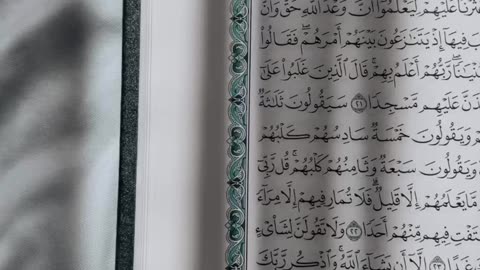 ثَرْنَا عَلَيْهِمْ لِيَعْلَمُوٓا۟ أَنَّ وَعْدَ ٱللَّهِ حَقٌّ وَأَنَّ
بَ فِيهَآ إِذْ يَتَنَـٰزَعُونَ بَيْنَهُمْ أَمْرَهُمْ ۖ فَقَالُوا۟
نْيَـٰنًا ۖ رَّبُّهُمْ أَعْلَمُ بِهِمْ ۚ قَالَ ٱلَّذِينَ غَلَبُوا۟ عَلَىٰٓ
ذَنَّ عَلَيْهِم مَّسْجِدًا ٢١ سَيَقُولُونَ ثَلَـٰثَةٌ
مْ وَيَقُولُونَ خَمْسَةٌ سَادِسُهُمْ كَلْبُهُمْ
وَيَقُولُونَ سَبْعَةٌ وَثَامِنُهُمْ كَلْبُهُمْ ۚ قُل رَّبِّىٓ
مَّا يَعْلَمُهُمْ إِلَّا قَلِيلٌ ۗ فَلَا تُمَارِ فِيهِمْ إِلَّا مِرَآءً
تَفْتِ فِيهِم مِّنْهُمْ أَحَدًا ٢٢ وَلَا تَقُولَنَّ لِشَا۟ىْءٍ
غَدًا ٢٣ إِلَّآ أَن يَشَآءَ ٱللَّهُ ۚ وَٱذْكُر رَّبَّكَ